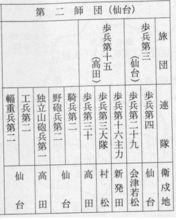 第二師団(仙台)
旅団
連隊
衛戍地
歩兵第三
(仙台)
歩兵第四
仙台
歩兵第二十九
会津若松
歩兵第十五
(高田)
歩兵第十六主力
新発田
歩兵第三大隊
村松
歩兵第三十
高田
騎兵第二
野砲兵第二
仙台
独立山砲兵第一
高田
工兵第二
輜重兵第二
仙台